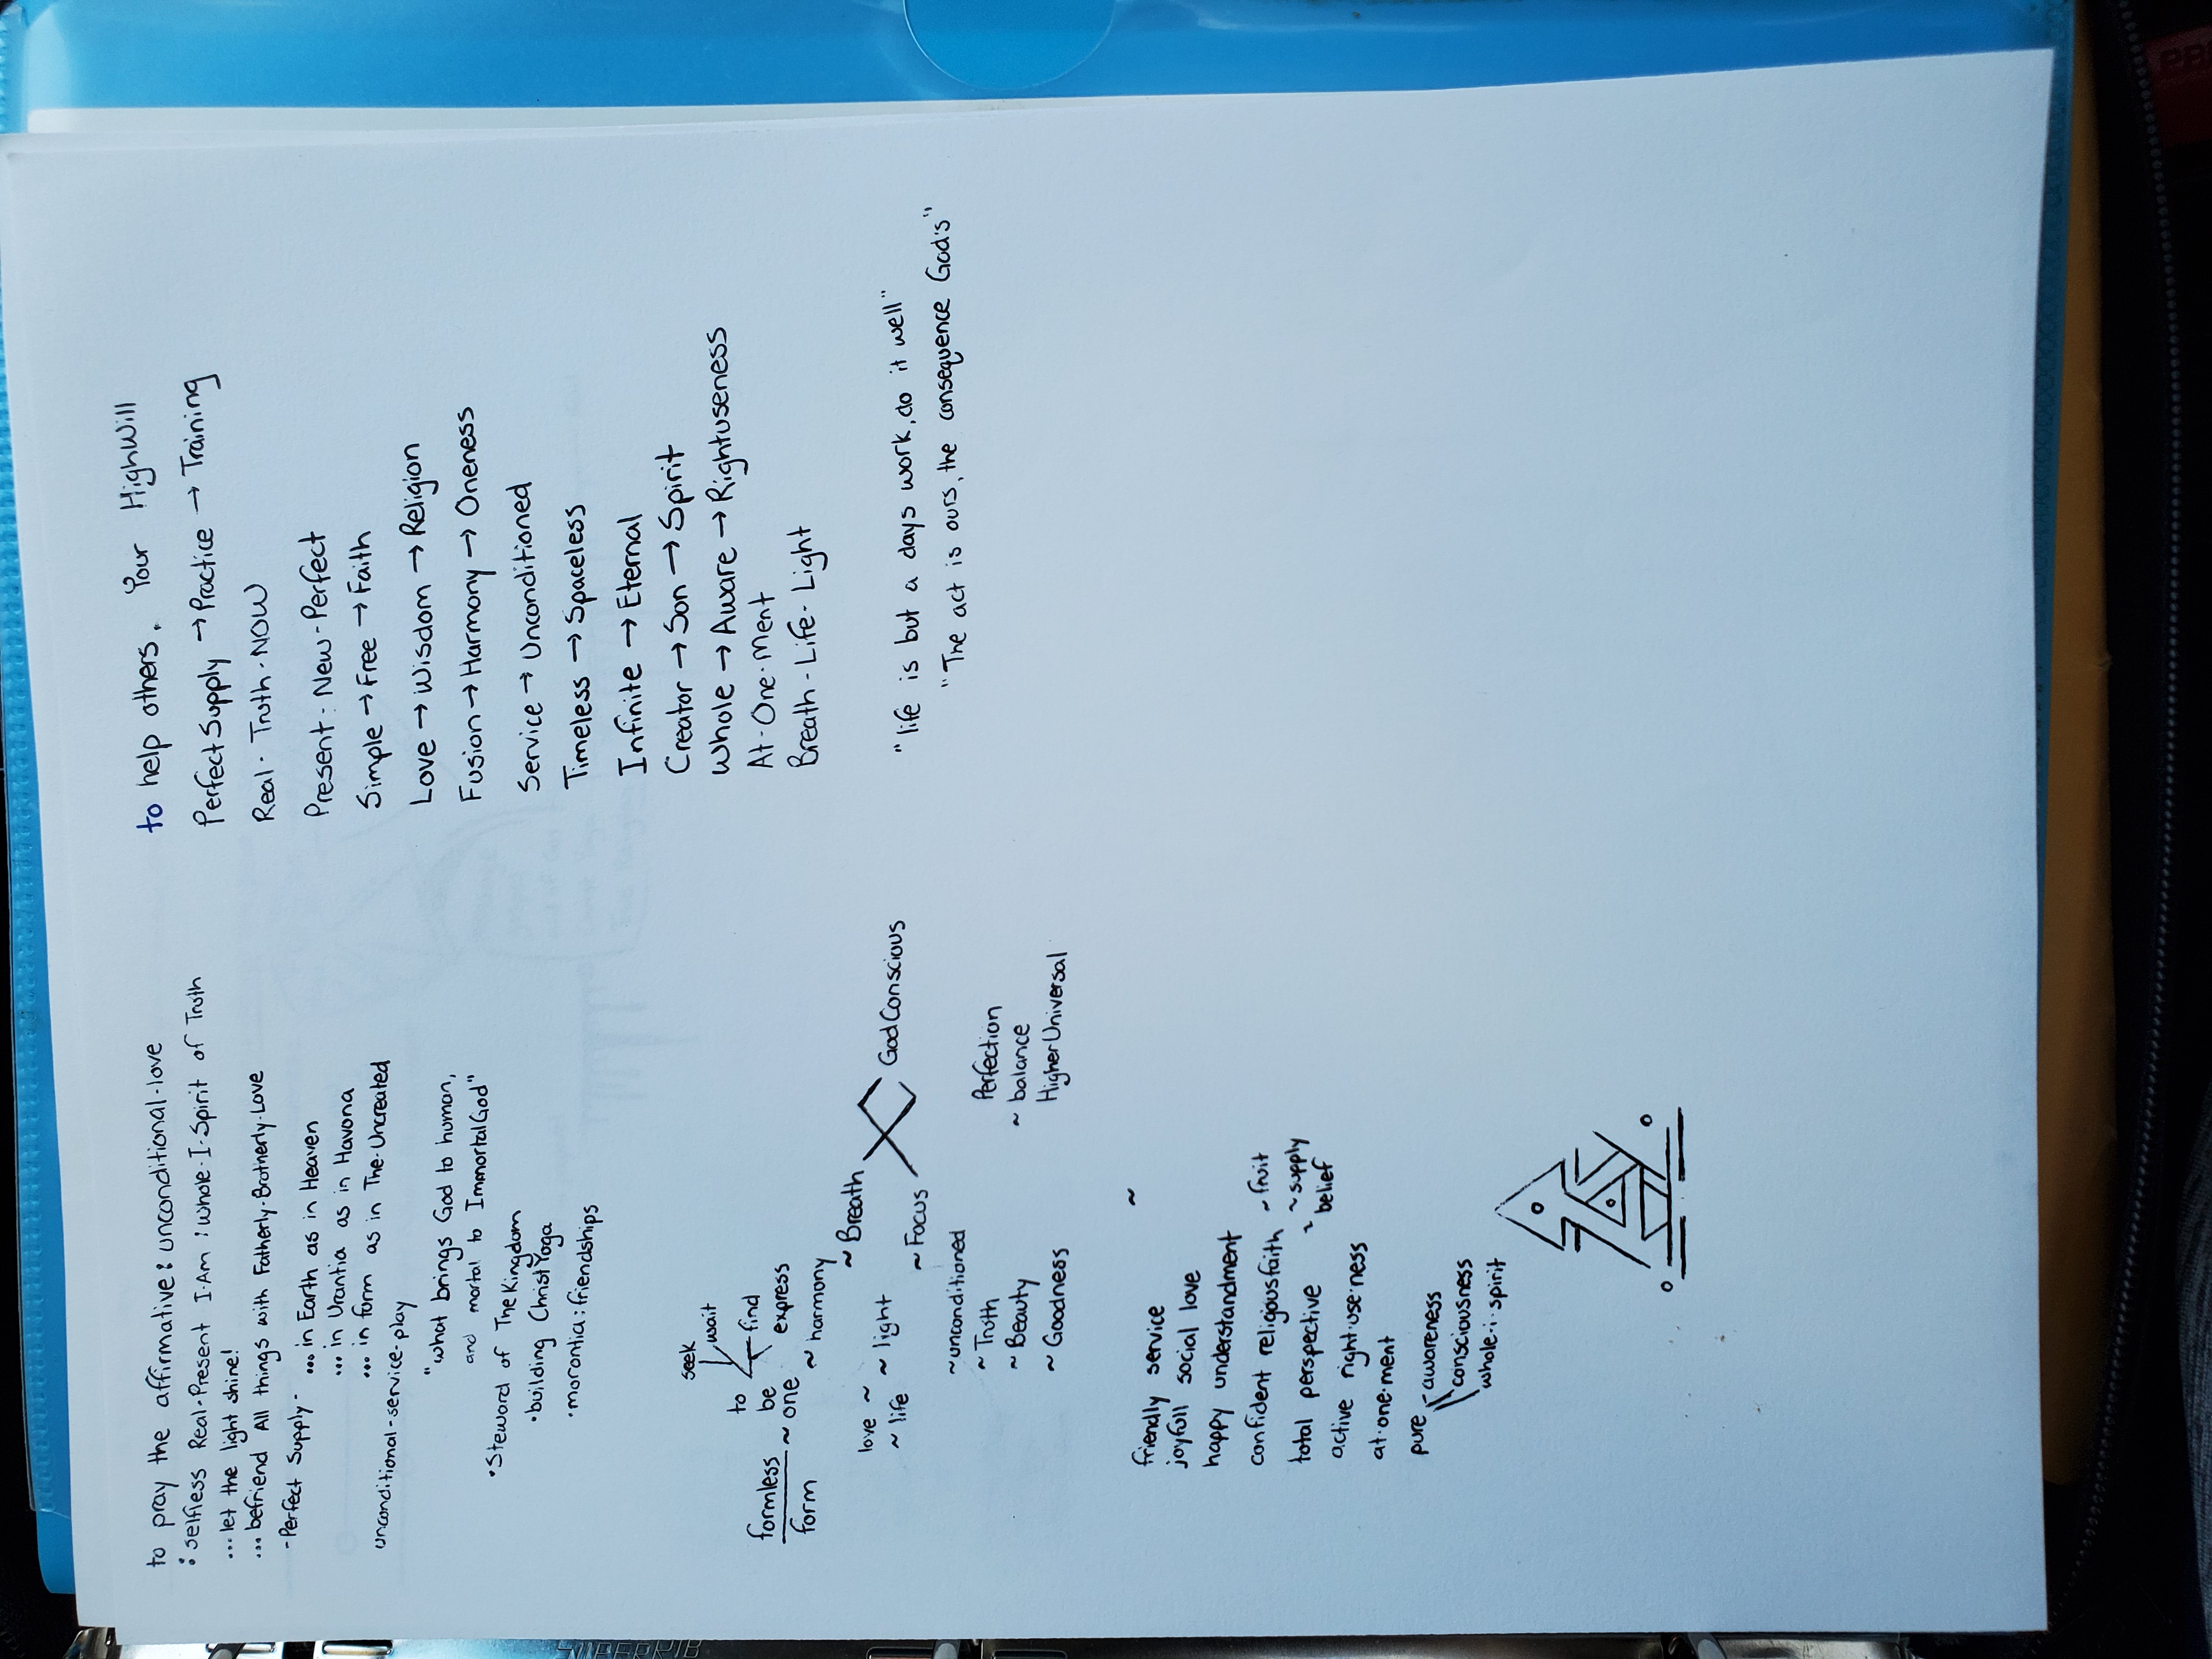 to pray the affirmative: unconditional·love
: selfless Real·Present I·Am : whole·I·Spirit of Truth
... let the light shine!
... befriend All things with Fatherly·Brotherly·Love
-Perfect Supply- ... in Earth as in Heaven
... in Urantia as in Havona
... in form as in The·Uncreated
unconditional-service-play
"what brings God to human,
and mortal to ImmortalGod"
·Steward of The Kingdom
·building Christ Yoga
·morontia:friendships
seek
wait
to
find
formless
be
express
form
~ one
~ harmony
~ Breath
love ~
~ light
~ life
~ Focus
GodConscious
~unconditioned
~ Truth
~ Beauty
~ Goodness
Perfection
~ balance
HigherUniversal
~
friendly service
joyfull social love
happy understandment
confident religious faith ~ fruit
total perspective ~ ~ supply
belief
active right·use·ness
at·one·ment
pure - awareness
consciousness
whole·i·spirit
to help others. Your HighWill
Perfect Supply → Practice → Training
Real · Truth · NOW
Present · New · Perfect
Simple → Free → Faith
Love → Wisdom → Religion
Fusion → Harmony → Oneness
Service → Unconditioned
Timeless → Spaceless
Infinite → Eternal
Creator → Son → Spirit
Whole → Aware → Rightuseness
At·One·Ment
Breath - Life - Light
"life is but a days work, do it well"
"The act is ours, the consequence God's"